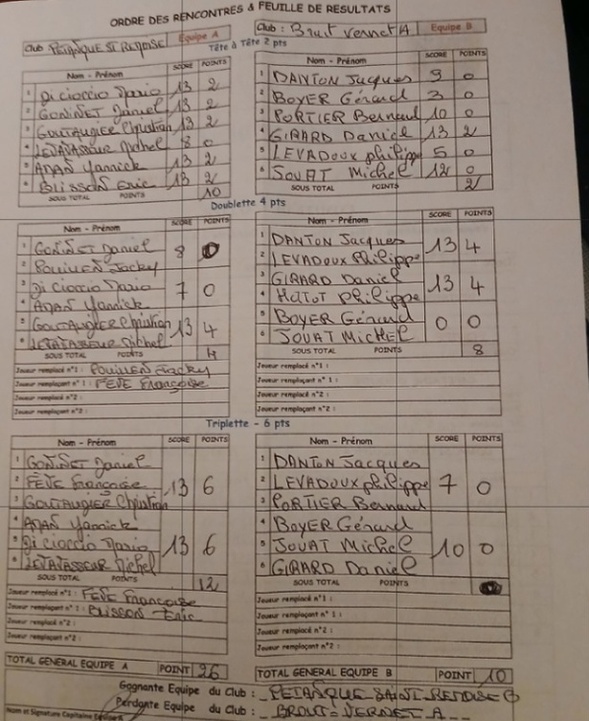 ORDRE DES RENCONTRES & FEUILLE DE RESULTATS
Club : PETANQUE ST REMOISE Equipe A
Club : Bruit vernet A Equipe B
Tête à Tête 2 pts
Nom - Prénom SCORE POINTS
1 Di cioccio Dario 13 2
2 GONINET Daniel 13 2
3 GOUTAUGIER Christian 13 2
4 LEVAVASSEUR Michel 8 0
5 ADAN Yannick 13 2
6 BLISSON Eric 13 2
SOUS TOTAL POINTS 10
Nom - Prénom SCORE POINTS
1 DANTON Jacques 9 0
2 BOYER Gérard 3 0
3 PORTIER Bernard 10 0
4 GIRARD Daniel 13 2
5 LEVADOUX philippe 5 0
6 JOUAT Michel 12 0
SOUS TOTAL POINTS 2
Doublette 4 pts
Nom - Prénom SCORE POINTS
1 GONINET Daniel 8
2 POUILLEN Jacky
3 Di cioccio Dario 7 0
4 ADAN Yannick
5 GOUTAUGIER Christian 13 4
6 LEVAVASSEUR Michel
SOUS TOTAL POINTS 4
Joueur remplacé n°1 : POUILLEN Jacky
Joueur remplaçant n° 1 : FEVE Françoise
Joueur remplacé n°2 :
Joueur remplaçant n°2 :
Nom - Prénom SCORE POINTS
1 DANTON Jacques 13 4
2 LEVADOUX Philippe
3 GIRARD Daniel 13 4
4 HATOT philippe
5 BOYER Gérard 0 0
6 JOUAT MicHEL
SOUS TOTAL POINTS 8
Joueur remplacé n°1 :
Joueur remplaçant n° 1 :
Joueur remplacé n°2 :
Joueur remplaçant n°2 :
Triplette - 6 pts
Nom - Prénom SCORE POINTS
1 GONINET Daniel
2 FÈVE Françoise 13 6
3 GOUTAUGIER Christian
4 ADAN Yannick
5 Di cioccio Dario 13 6
6 LEVAVASSEUR Michel
SOUS TOTAL POINTS 12
Joueur remplacé n°1 : FEVE Françoise
Joueur remplaçant n° 1 : BLISSON Eric
Joueur remplacé n°2 :
Joueur remplaçant n°2 :
Nom - Prénom SCORE POINTS
1 DANTON Jacques
2 LEVADOUX philippe 7 0
3 PORTIER Bernard
4 BOYER Gérard
5 JOUAT Michel 10 0
6 GIRARD Daniel
SOUS TOTAL POINTS
Joueur remplacé n°1 :
Joueur remplaçant n° 1 :
Joueur remplacé n°2 :
Joueur remplaçant n°2 :
TOTAL GENERAL EQUIPE A POINT 26
TOTAL GENERAL EQUIPE B POINT 10
Gagnante Equipe du Club : PETANQUE SAINT REMOISE
Perdante Equipe du Club : BROUT-VERNET A
Nom et Signature Capitaine Equipe A